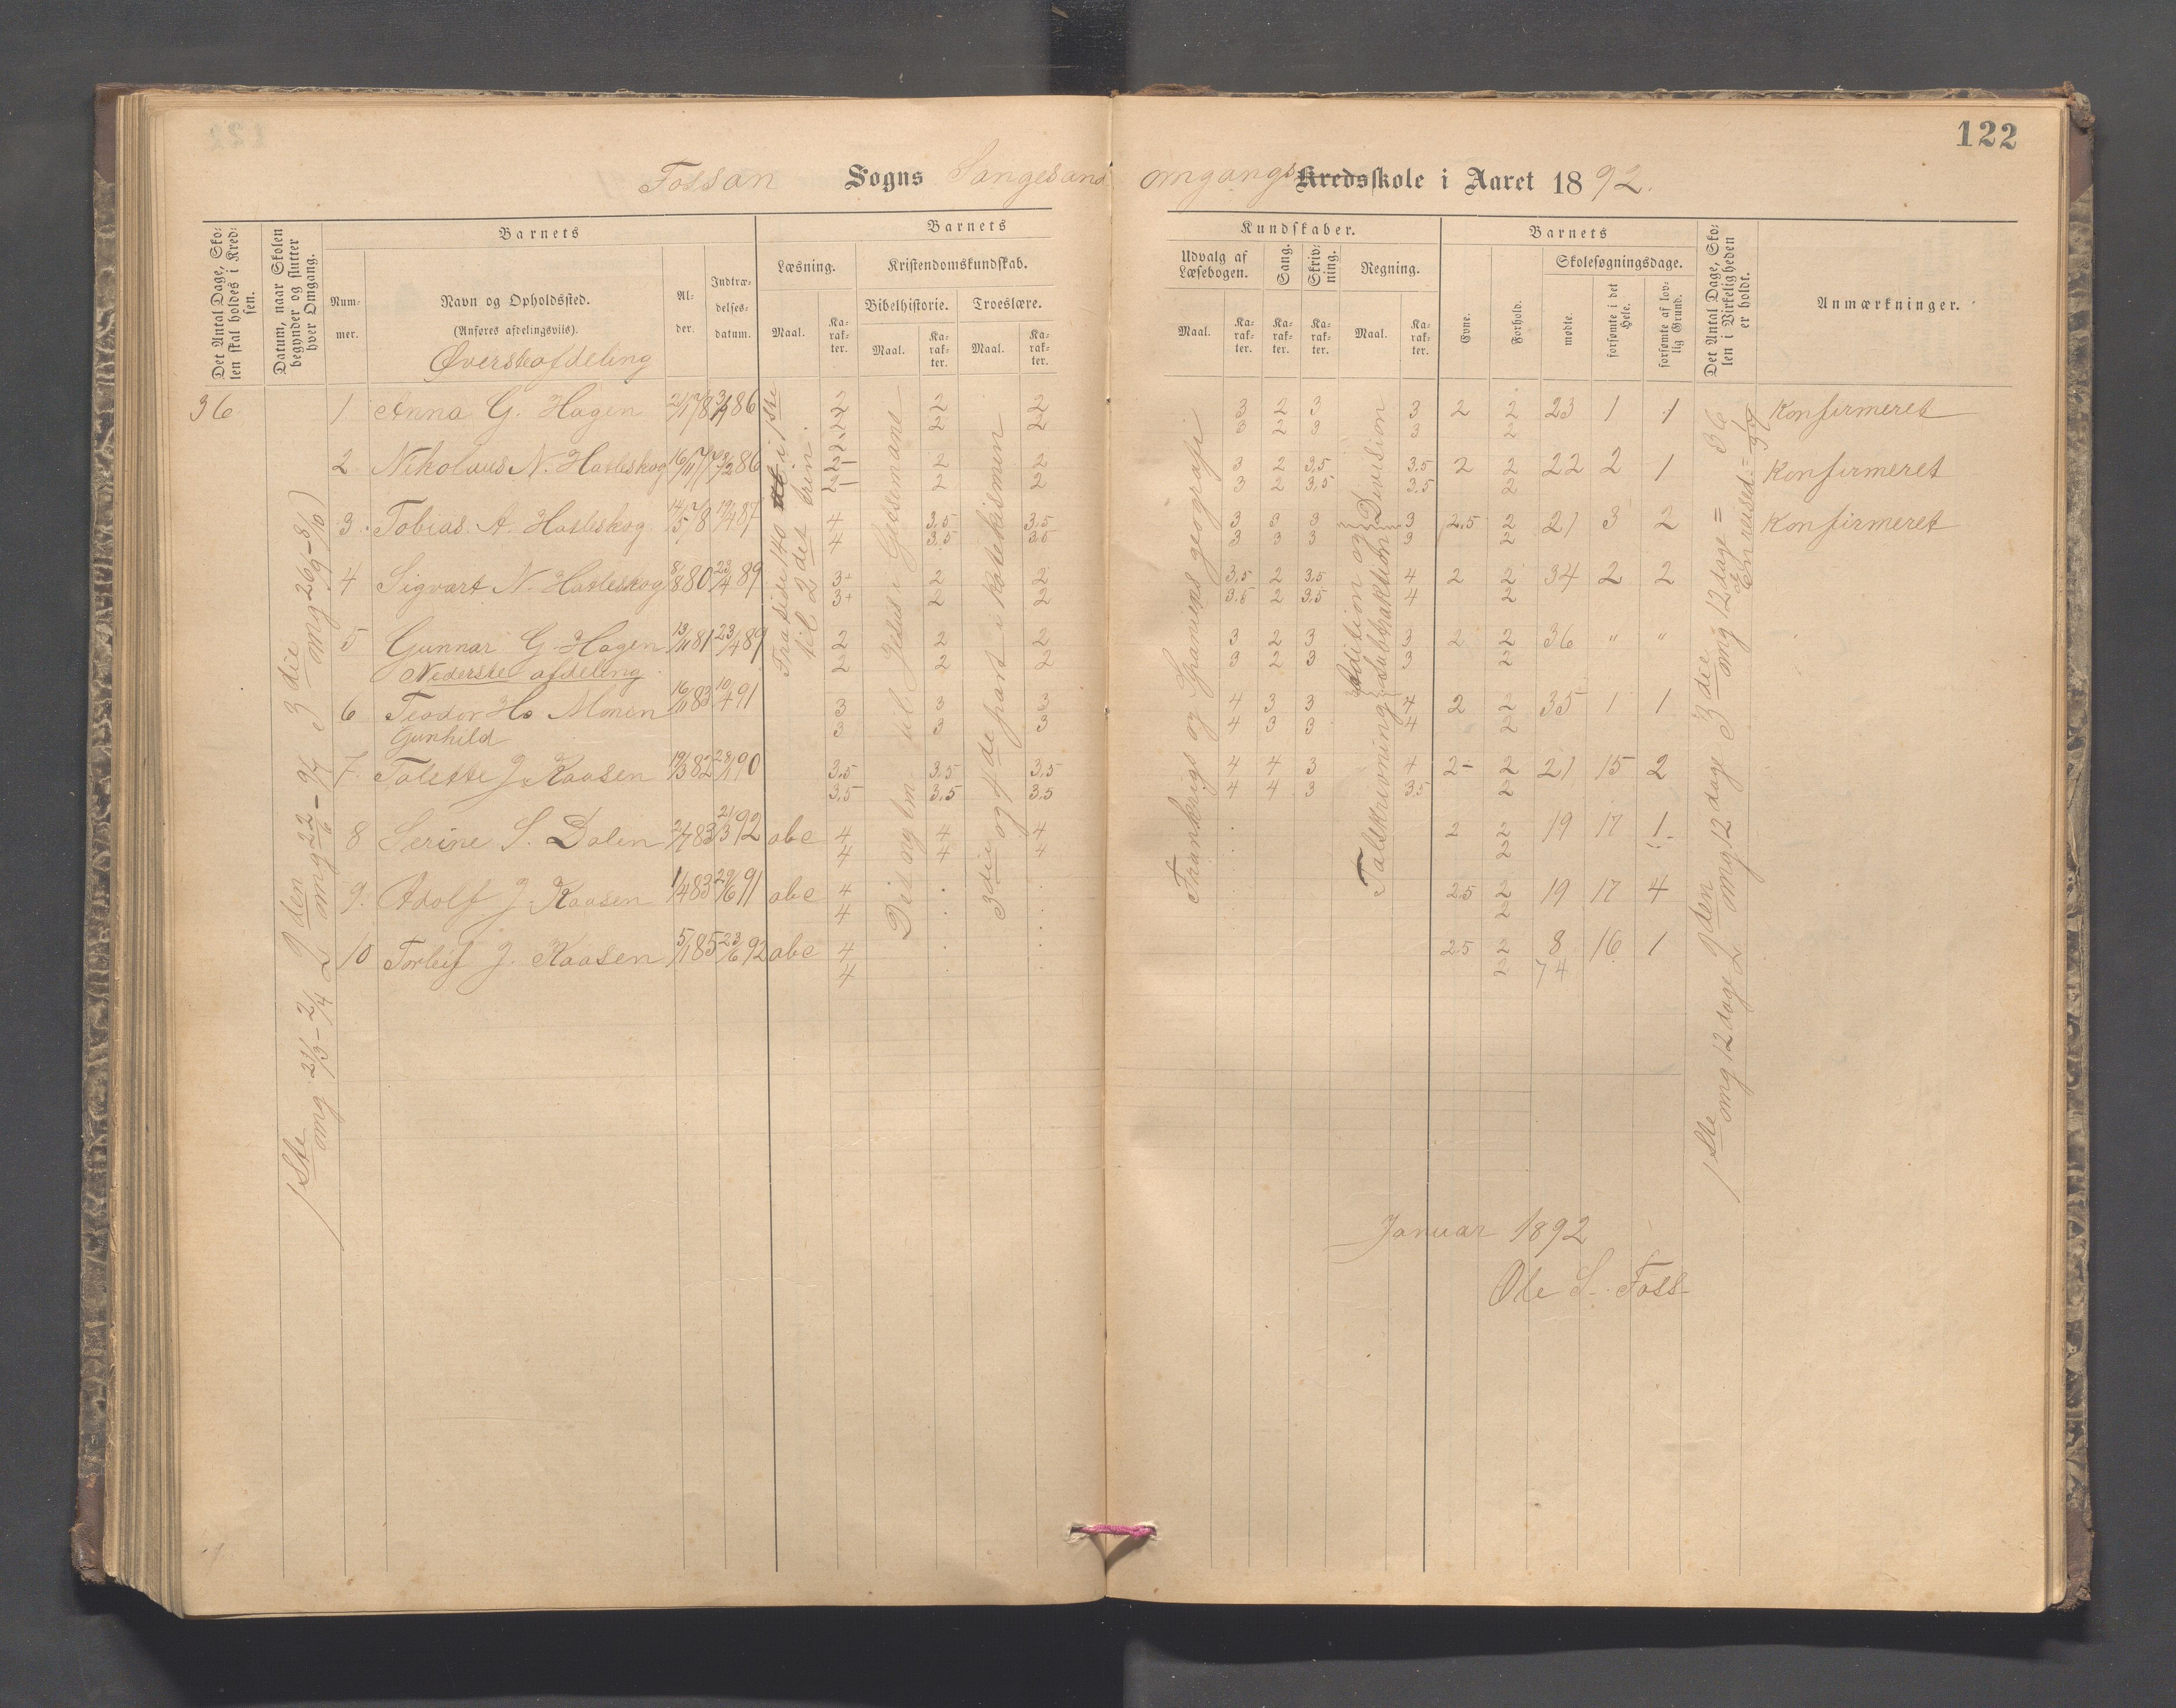 122
Fossan Sogns Sangesand omgangs Kredsskole i Aaret 1892.
Det Antal Dage, Skolen skal holdes i Kredsen.
Datum, naar Skolen begynder og slutter hver Omgang.
Barnets
Nummer.
Navn og Opholdssted.
(Anføres afdelingsviis).
Alder.
Indtrædelsesdatum.
Barnets
Læsning.
Maal.
Karakter.
Kristendomskundskab.
Bibelhistorie.
Maal.
Karakter.
Troeslære.
Maal.
Karakter.
Kundskaber.
Udvalg af Læsebogen.
Maal.
Karakter.
Sang.
Karakter.
Skrivning.
Karakter.
Regning.
Maal.
Karakter.
Barnets
Evne.
Forhold.
Skolesøgningsdage.
mødte.
forsømte i det Hele.
forsømte af lovlig Grund.
Det Antal Dage, Skolen i Virkeligheden er holdt.
Anmærkninger.
Øversteafdeling
36
1 Anna G. Hagen 86 2 2 2 2 2 2 3 3 2 2 3 3 3 3 2 2 2 23 1 1 Konfirmeret
2 Nikolaus N. Hatleskog 86 2- 2- 2 2 2 2 3 3 2 2 3,5 3,5 3,5 3,5 2 2 2 22 2 1 Konfirmeret
3 Tobias. A. Hatleskog 14/5 78 19/4 87 4 4 3,5 3,5 3,5 3,5 3 3 3 3 3 3 3 3 2,5 2 2 21 3 2 Konfirmeret
4 Sigvart N. Hatleskog 8/8 80 23/4 89 3+ 3+ 2 2 2 2 3,5 3,5 2 2 3,5 3,5 4 4 2 2 2 34 2 2
5 Gunnar G. Hagen 13/11 81 23/4 89 2 2 2 2 2 2 3 3 2 2 3 3 3 3 2 2 2 36 " "
Nederste afdeling
6 Teodor Hs Monen 16/11 83 10/4 91 3 3 3 3 3 3 4 4 3 3 3 3 4 4 2 2 2 35 1 1
Gunhild
7. Talette J. Kaasen 19/3 82 28/1 90 3,5 3,5 3,5 3,5 3,5 3,5 4 4 4 4 3 3 4 3,5 2- 2 2 21 15 2
8 Serine S. Dalen 2/7 83 21/3 92 abc 4 4 4 4 4 4 2 2 2 19 17 1
9. Adolf J. Kaasen 1/4 83 29/6 91 abc 4 4 2,5 2 2 19 17 4
10 Torleif J. Kaasen 5/1 85 23/6 92 abc 4 4 2,5 2 2 8 16 1
74
1ste omg 21/3 – 2/4 2den omg 22/6 – 9/7 3die omg 26/9 – 8/10
Fra side 140 i 1ste til 2det trin.
til Jesus i Getsemane
3die og 4de part i katekismen
Frankrigs og Spaniens geografi
Talskrivning Adition og Subtraktion Division
1ste omg 12 dage 2den omg 12 dage 3die omg 12 dage = 36
Januar 1892
Ole S. Foss